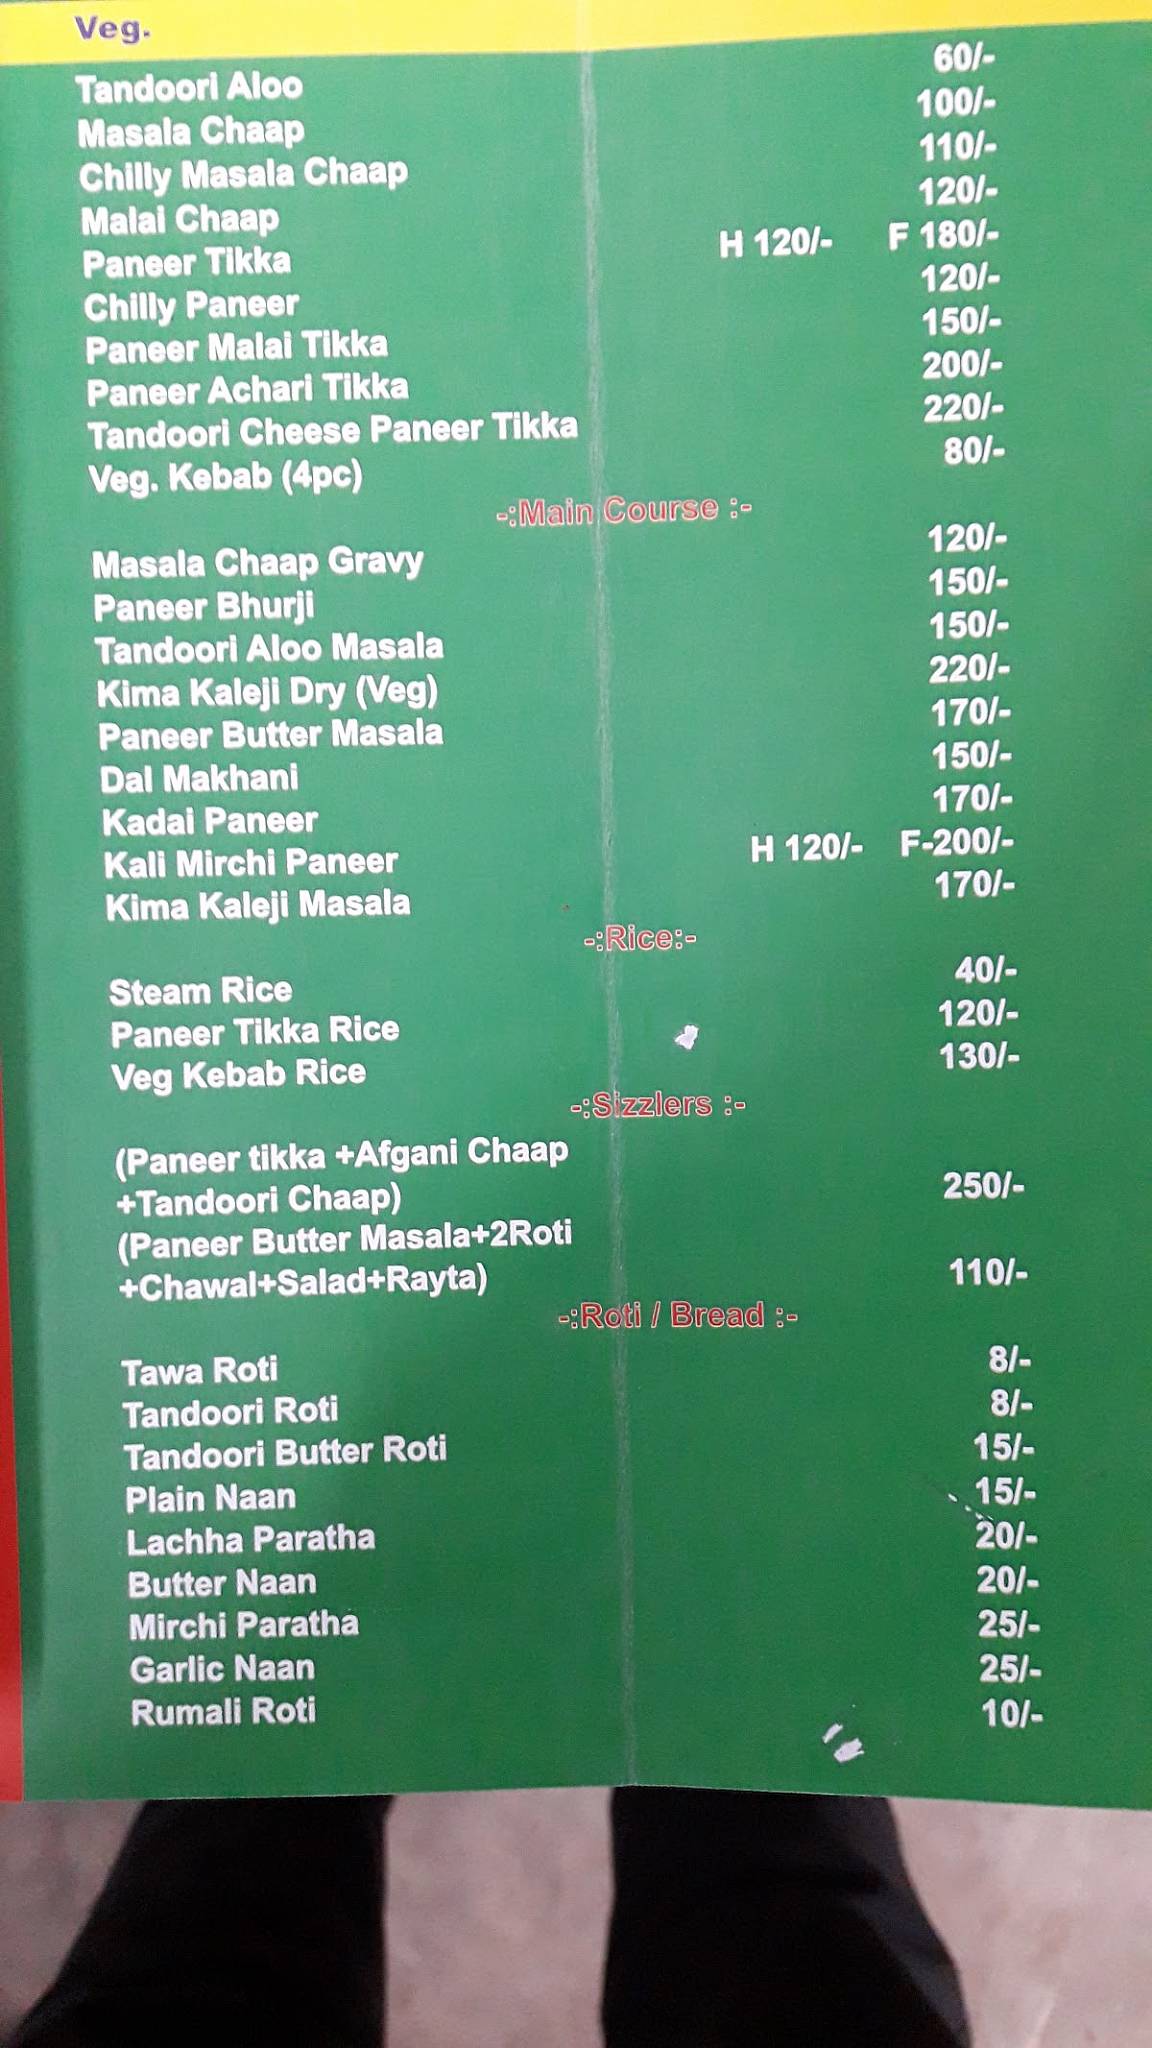 Veg.
Tandoori Aloo 60/-
Masala Chaap 100/-
Chilly Masala Chaap 110/-
Malai Chaap 120/-
Paneer Tikka H 120/- F 180/-
Chilly Paneer 120/-
Paneer Malai Tikka 150/-
Paneer Achari Tikka 200/-
Tandoori Cheese Paneer Tikka 220/-
Veg. Kebab (4pc) 80/-
-:Main Course :-
Masala Chaap Gravy 120/-
Paneer Bhurji 150/-
Tandoori Aloo Masala 150/-
Kima Kaleji Dry (Veg) 220/-
Paneer Butter Masala 170/-
Dal Makhani 150/-
Kadai Paneer 170/-
Kali Mirchi Paneer H 120/- F-200/-
Kima Kaleji Masala 170/-
-:Rice:-
Steam Rice 40/-
Paneer Tikka Rice 120/-
Veg Kebab Rice 130/-
-:Sizzlers :-
(Paneer tikka +Afgani Chaap
+Tandoori Chaap) 250/-
(Paneer Butter Masala+2Roti
+Chawal+Salad+Rayta) 110/-
-:Roti / Bread :-
Tawa Roti 8/-
Tandoori Roti 8/-
Tandoori Butter Roti 15/-
Plain Naan 15/-
Lachha Paratha 20/-
Butter Naan 20/-
Mirchi Paratha 25/-
Garlic Naan 25/-
Rumali Roti 10/-